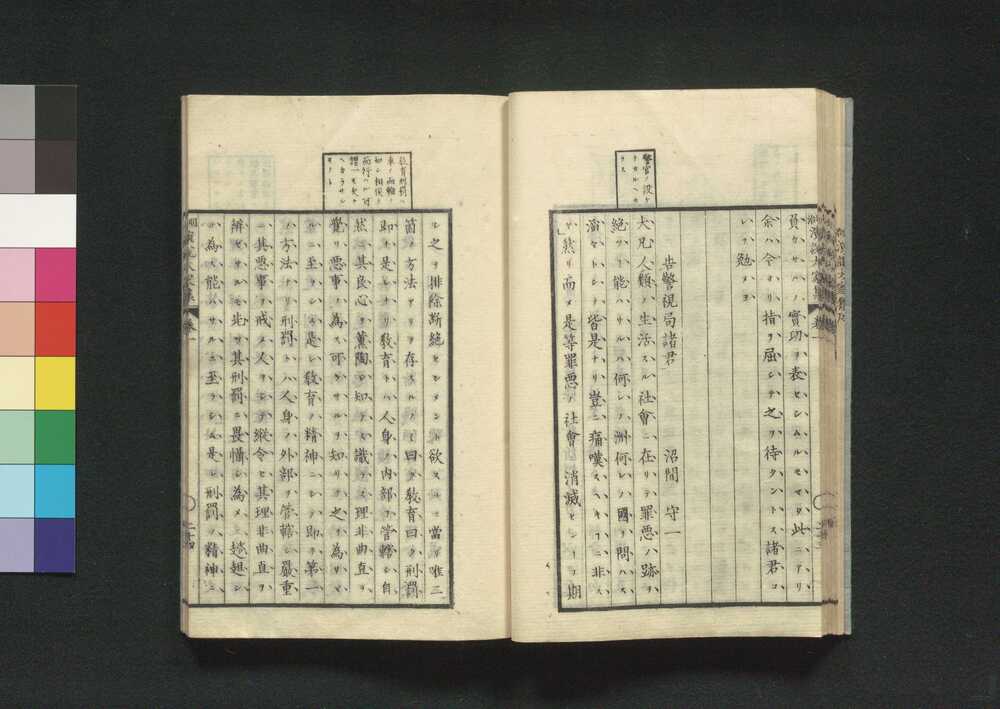 員タルハノ實切ヲ表セシムルモマタ此ニアリ
余ハ今ヨリ指ヲ屈シテ之ヲ待タントス諸君ヨ
シク勉メヨ
告警視局諸君
沼間守一
大凡人類ノ生活スル社會ニ在リテ罪惡ハ跡ヲ
絶ツ能ハサルハ何レノ洲何レノ國ヲ問ハス
滔々トシテ皆是ナリ豈ニ痛嘆スヘキフニ非ス
ヤ然リ而メ是等罪惡ヲ社會ニ消滅センフヲ期
シ之ヲ排除斷絶セシメント欲スルニ當リ唯二
箇ノ方法ヲ存スルノミ曰ク敎育曰ク刑罰
即チ是レナリ敎育トハ人身ノ内部ヲ管轄シ自
然ニ其良心ヲ薫陶シ知ラス識ラス理非曲直ヲ
覺リ惡事ノ為ス可カラサルヲ知リテ之ヲ為サヾ
ルニ至ラシム是レ敎育ノ精神ニシテ即チ第一
ノ方法ナリ刑罰トハ人身ノ外部ヲ管轄シ嚴重
ニ其惡事ヲ戒メ人ヲシテ縱令ヒ其理非曲直ヲ
辨セサルモ尚ホ其刑罰ニ畏懼シ為メニ趦趄シ
テ為ス能ハサルニ至ラシム是レ刑罰ノ精神ニ
卷一
二十四
敎育刑罰ハ
車ノ兩輪ノ
如シ相俟テ
而行ハル可
謂一モ欠ク
ヘカラサル
モノト